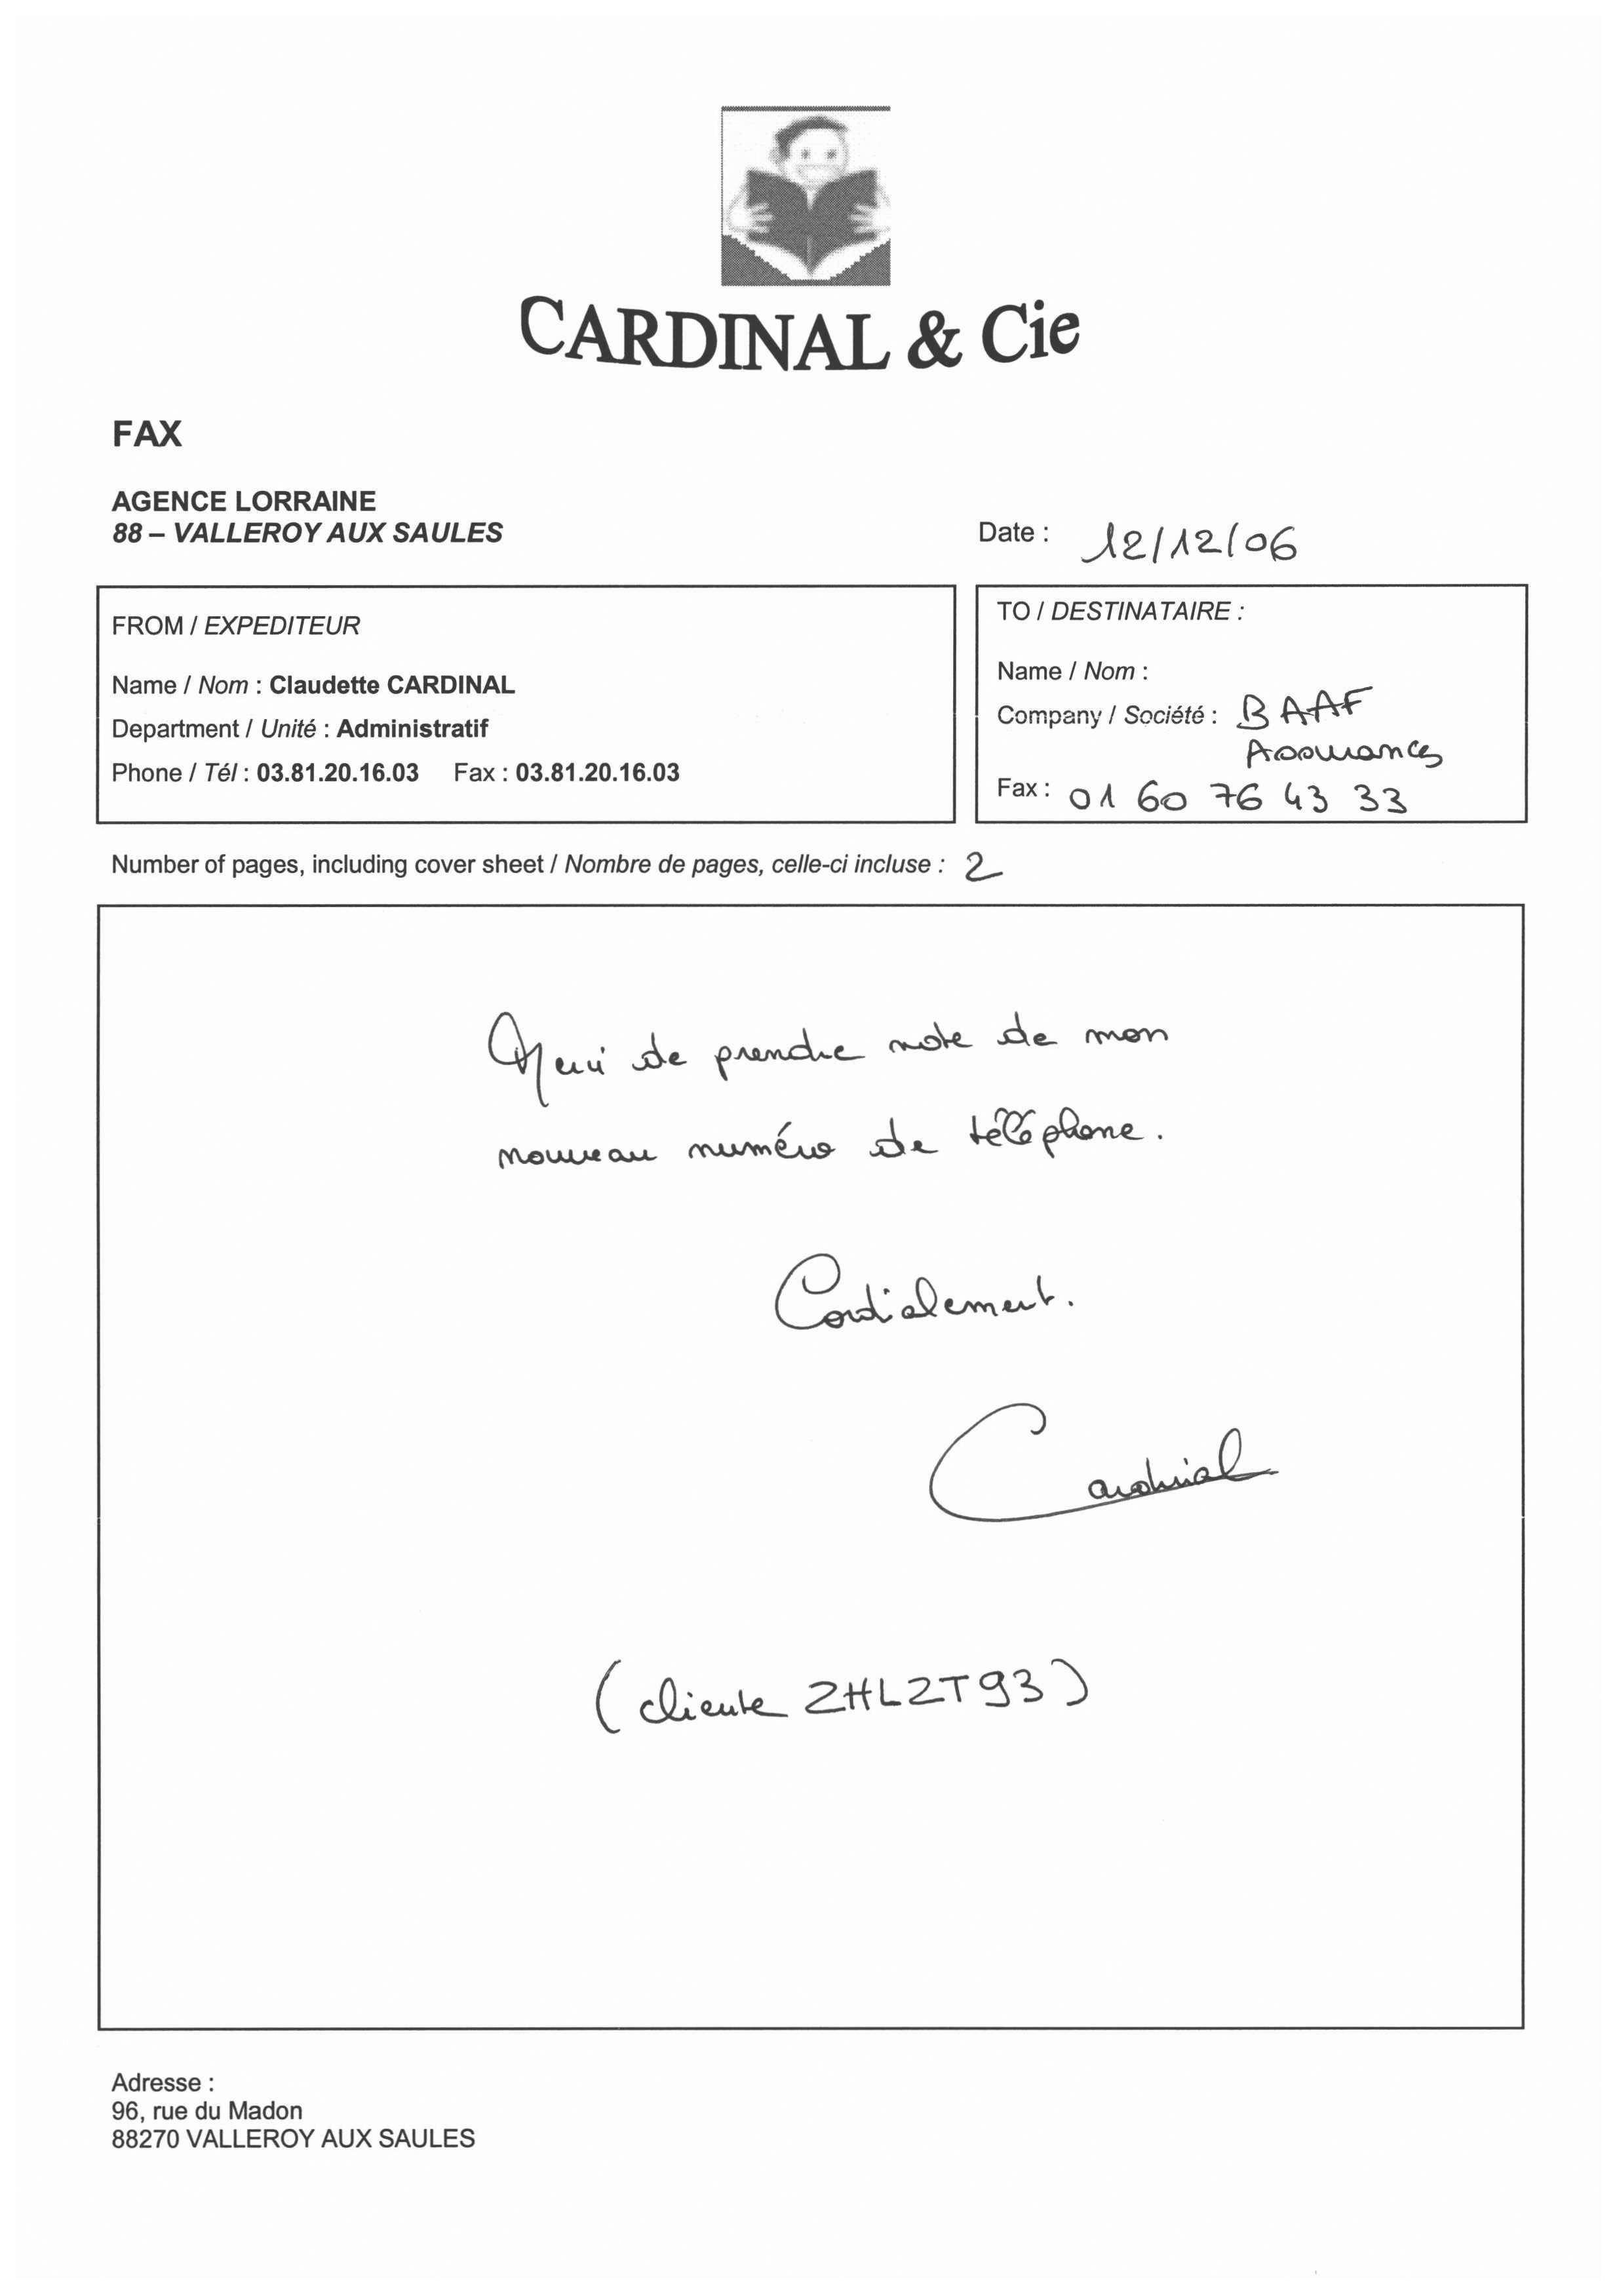 CARDINAL & Cie
FAX
AGENCE LORRAINE
88 – VALLEROY AUX SAULES
Date : 12/12/06
FROM / EXPEDITEUR
Name / Nom : Claudette CARDINAL
Department / Unité : Administratif
Phone / Tél : 03.81.20.16.03 Fax : 03.81.20.16.03
TO / DESTINATAIRE :
Name / Nom :
Company / Société : BAAF
Assurances
Fax : 01 60 76 43 33
Number of pages, including cover sheet / Nombre de pages, celle-ci incluse : 2
Merci de prendre note de mon
nouveau numéro de téléphone.
Cordialement.
Cardinal
(cliente ZHLZT93)
Adresse :
96, rue du Madon
88270 VALLEROY AUX SAULES